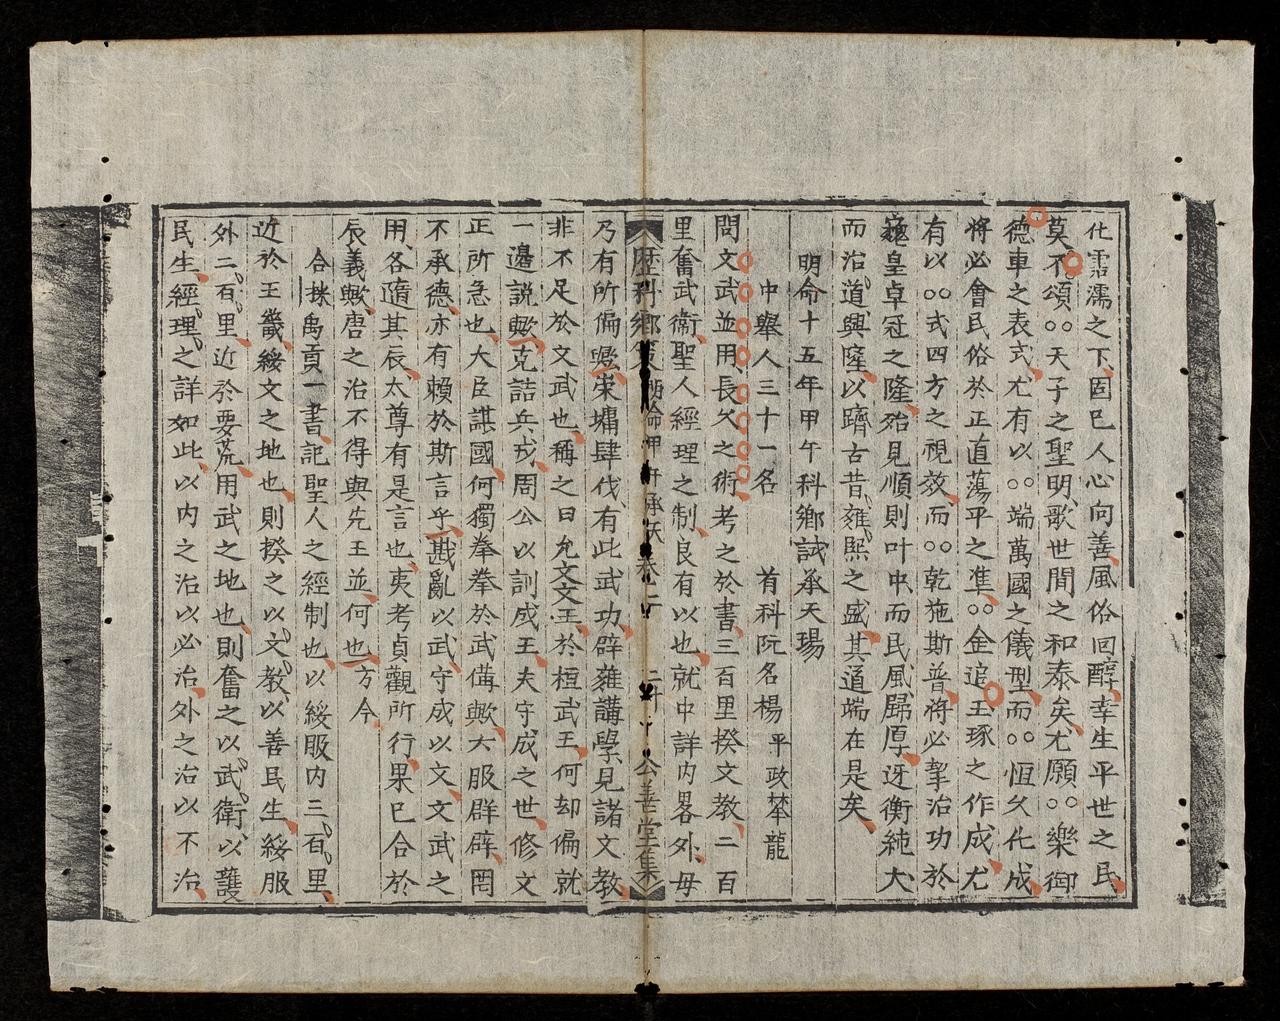 化霑濡之下固已人心向善風俗回醇幸生平世之民
莫不頌○○天子之聖明歌世間之和泰矣尤願○○樂御
德車之表式尤有以○○端萬國之儀型而○○恒久化成
將必會民俗於正直蕩平之準○○金追玉琢之作成尤
有以○○式四方之視效而○○乾施斯普將必挈治功於
巍皇卓冠之隆殆見順則叶中而民風歸厚迓衡純大
而治道興隆以躋古昔雍熙之盛其道端在是矣
明命十五年甲午科鄉試承天場
中舉人三十一名 首科阮名楊 平政𡊨龍
問文武並用長久之術考之於書三百里揆文教二百
里奮武衛聖人經理之制良有以也就中詳內畧外毋
歷科鄉 明命甲午承天 卷二 公善堂集
乃有所偏歟崇墉肆伐有此武功辟雍講學見諸文教
非不足於文武也稱之曰允文文王於桓武王何却偏就
一邊説歟克詰兵戎周公以訓成王夫守成之世修文
正所急也大臣謀國何獨拳拳於武備歟大服群辟罔
不承德亦有賴於斯言乎戡亂以武守成以文文武之
用各隨其辰太尊有是言也夷考貞觀所行果已合於
辰義歟唐之治不得與先王並何也方今
合採禹貢一書記聖人之經制也以綏服內三百里
近於王畿綏文之地也則揆之以文教以善民生綏服
外二百里近於要荒用武之地也則奮之以武衛以護
民生經理之詳如此以內之治以必治外之治以不治